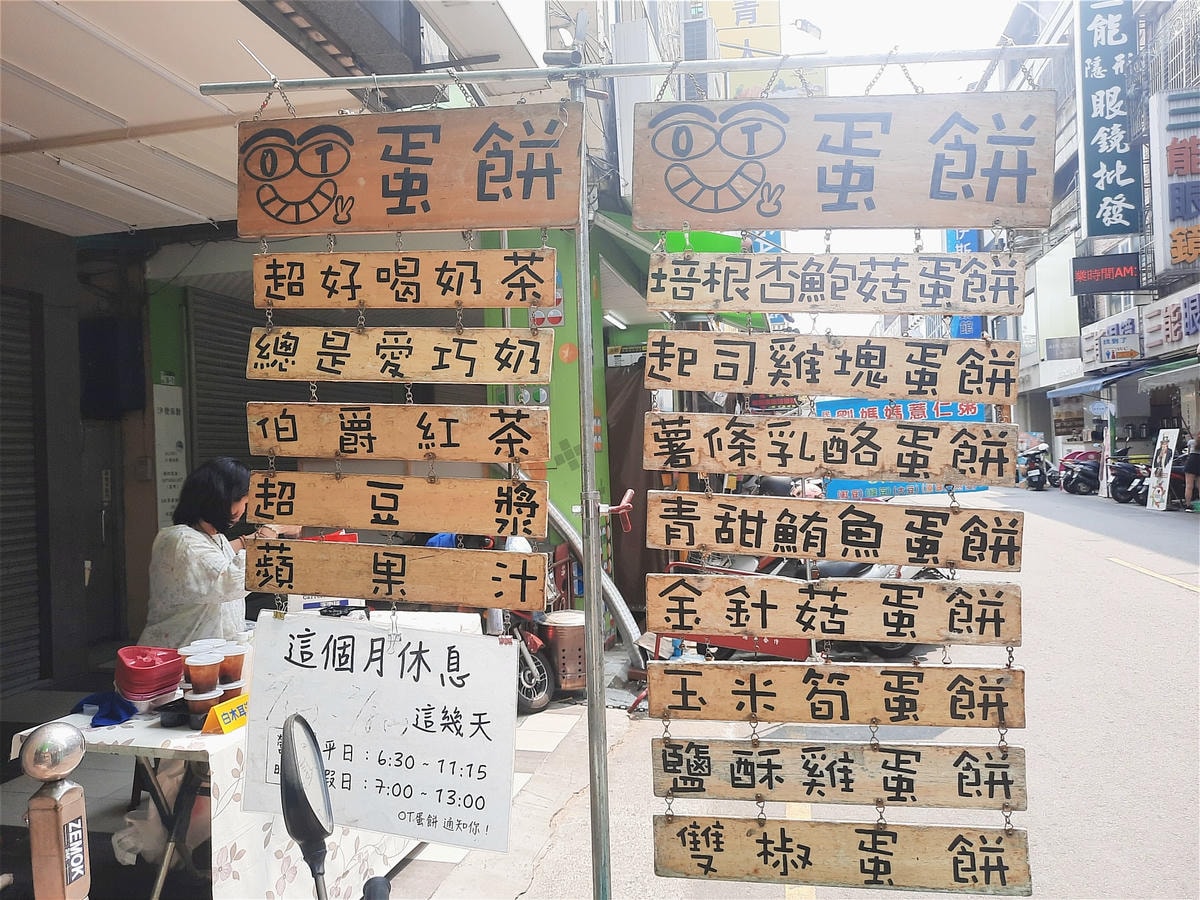 OT蛋餅
超好喝奶茶
總是愛巧奶
伯爵紅茶
超豆漿
蘋果汁
這個月休息
這幾天
平日:6:30~11:15
假日:7:00~13:00
OT蛋餅 通知你!
OT蛋餅
培根杏鮑菇蛋餅
起司雞塊蛋餅
薯條乳酪蛋餅
青甜鮪魚蛋餅
金針菇蛋餅
玉米筍蛋餅
鹽酥雞蛋餅
雙椒蛋餅
隱形眼鏡批發
業時間AM:
劉媽媽薏仁粥
白木耳
ZEMOK